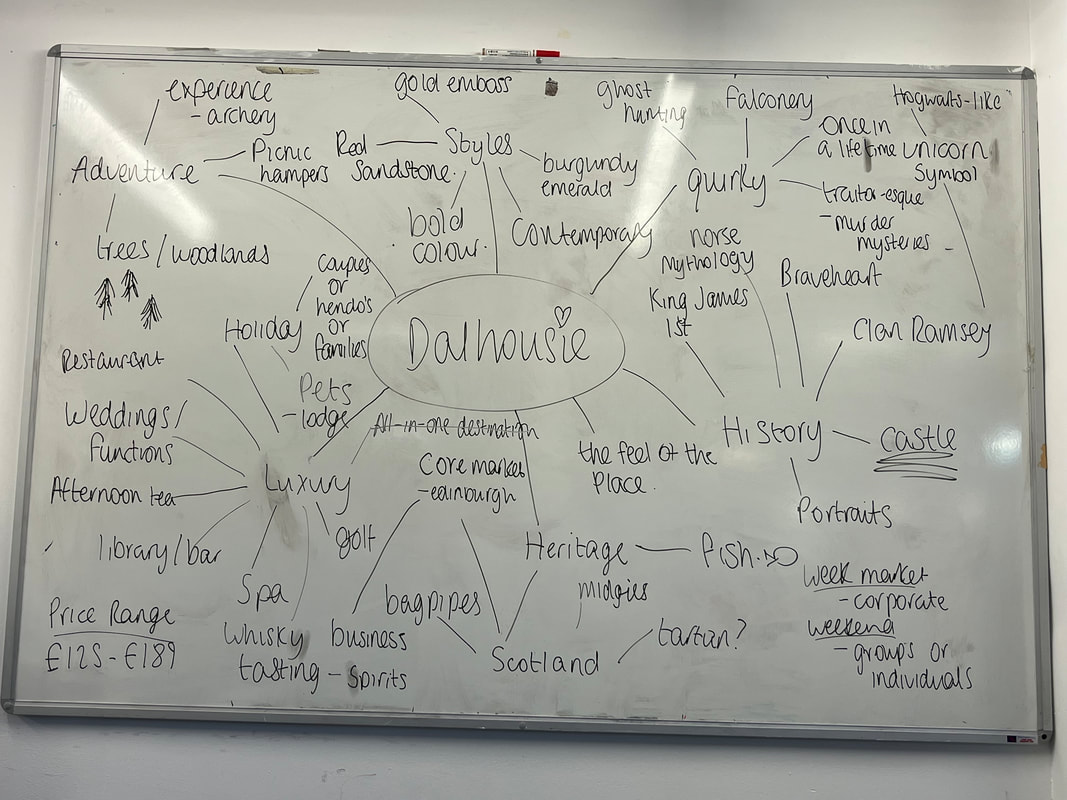 experience
- archery
Adventure
Picnic
hampers
trees / woodlands
gold emboss
Styles
Red
Sandstone.
burgundy
emerald
bold
colour.
Contemporary
ghost
hunting
Falconery
Once in
a lifetime
quirky
traitor-esque
- murder
mysteries
Hogwarts-like
unicorn
Symbol
Clan Ramsey
norse
mythology
King James
1st
Braveheart
History
castle
Portraits
Dalhousie
Holiday
couples
or
hendo's
or
families
Pets
- lodge
All-in-one destination
Restaurant
Weddings/
Functions
Afternoon tea
Luxury
library/bar
Spa
golf
Whisky
tasting - Spirits
Core market
- edinburgh
business
the feel of the
place.
Heritage
fish.
midgies
bagpipes
Scotland
tartan?
Price Range
£125 - £189
week market
- corporate
weekend
- groups or
individuals